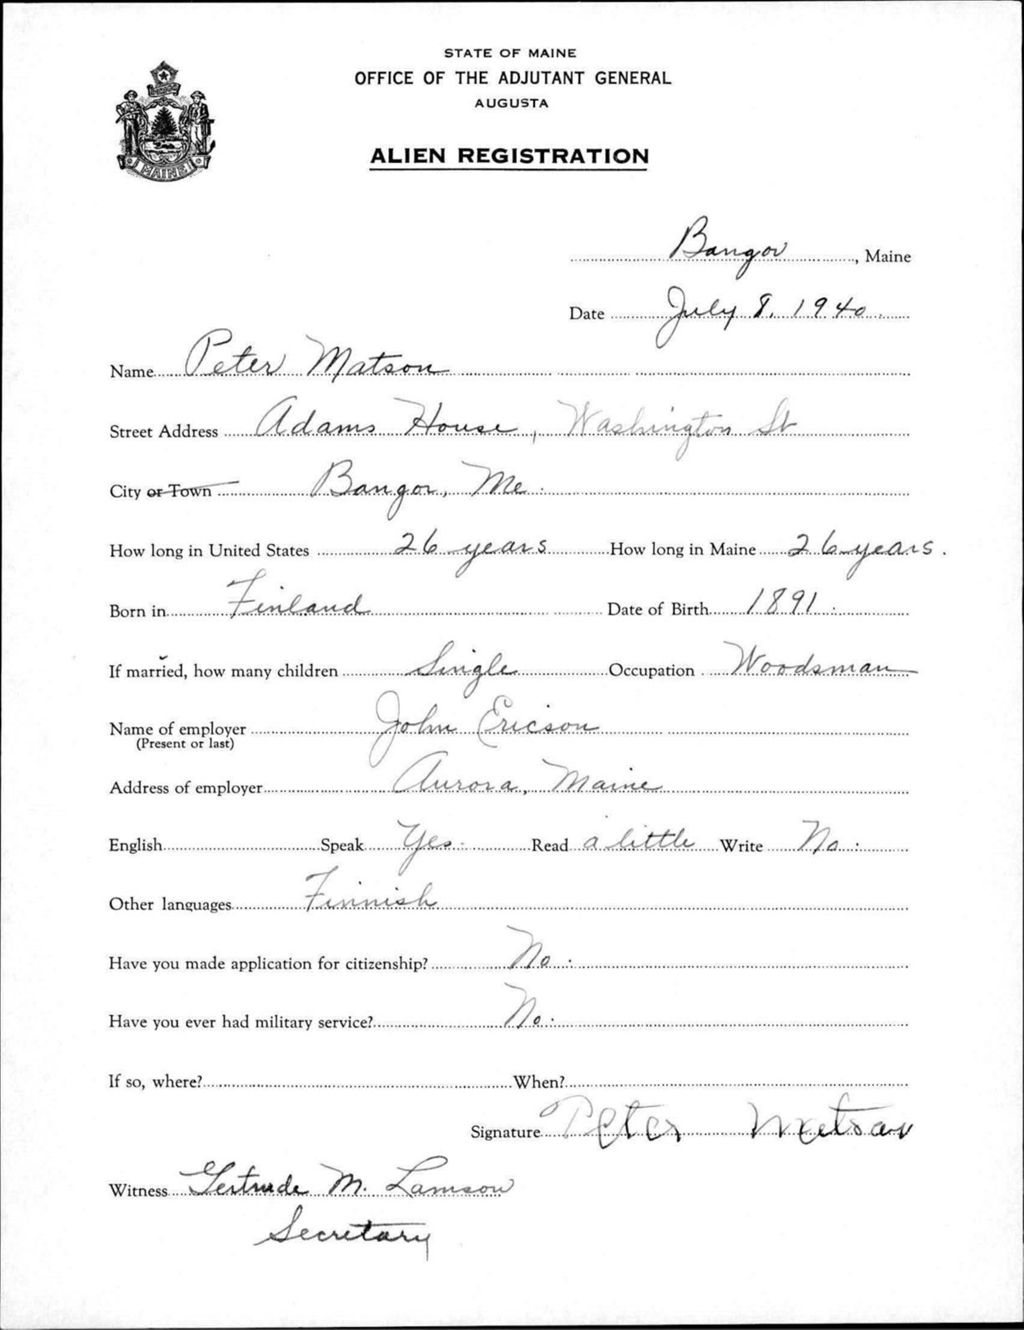 STATE OF MAINE
OFFICE OF THE ADJUTANT GENERAL
AUGUSTA
ALIEN REGISTRATION
MAINE
Bangor, Maine
Date July 8, 1940
Name Peter Matson
Street Address Adams House, Washington St
City or Town Bangor, Me.
How long in United States 26 years How long in Maine 26 years.
Born in Finland Date of Birth 1891.
If married, how many children Single Occupation Woodsman
Name of employer John Ericson
(Present or last)
Address of employer Aurora, Maine
English Speak Yes. Read a little Write No.
Other languages Finnish
Have you made application for citizenship? No.
Have you ever had military service? No.
If so, where? When?
Signature Peter Metsav
Witness Gertrude M. Lamson
Secretary